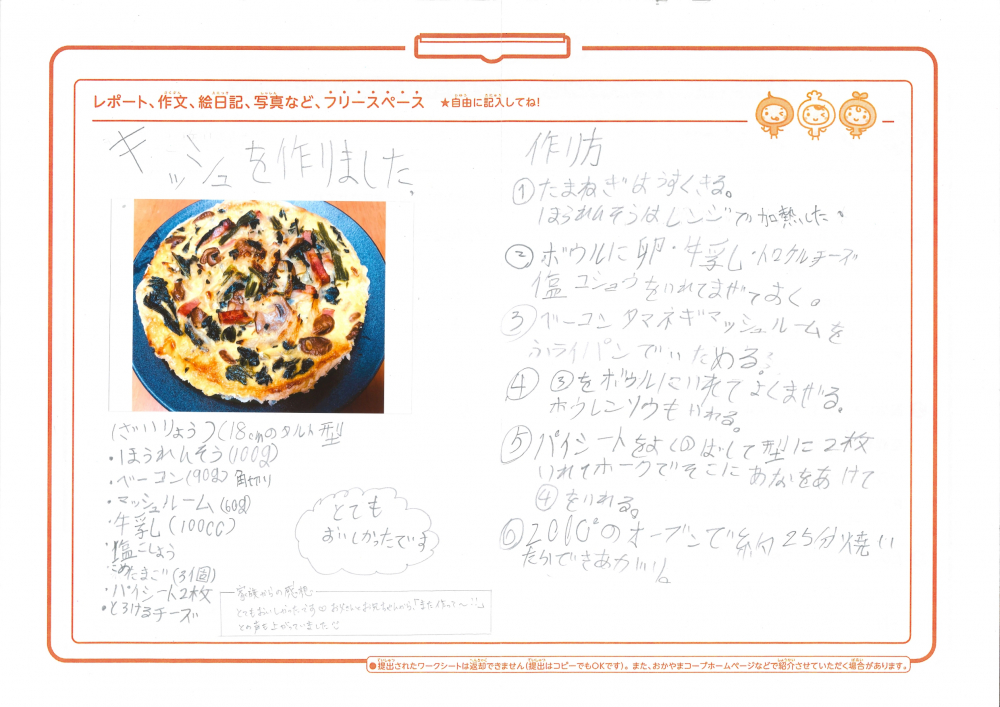 レポート、作文、絵日記、写真など、フリースペース ★自由に記入してね!
キッシュを作りました。
(ざいりょう)(18cmのタルト型
・ほうれんそう(100g)
・ベーコン(90g)角切り
・マッシュルーム(60g)
・牛乳(100cc)
・塩こしょう
・たまご(3個)
・パイシート2枚
・とろけるチーズ
とても
おいしかったです
家族からの感想
とてもおいしかったです お父さんとお兄ちゃんから、「また作って〜!!」
との声も上がっていました
作り方
①たまねぎはうすくきる。
ほうれんそうはレンジで加熱した。
②ボウルに卵・牛乳・トロケルチーズ
塩コショウをいれてまぜておく。
③ベーコンタマネギマッシュルームを
フライパンでいためる。
④③をボウルにいれてよくまぜる。
ホウレンソウもいれる。
⑤パイシートをよくのばして型に2枚
いれてホークでそこにあなをあけて
④をいれる。
⑥201C°のオーブンで約25分焼い
たらできあがり。
●提出されたワークシートは返却できません(提出はコピーでもOKです)。また、おかやまコープホームページなどで紹介させていただく場合があります。